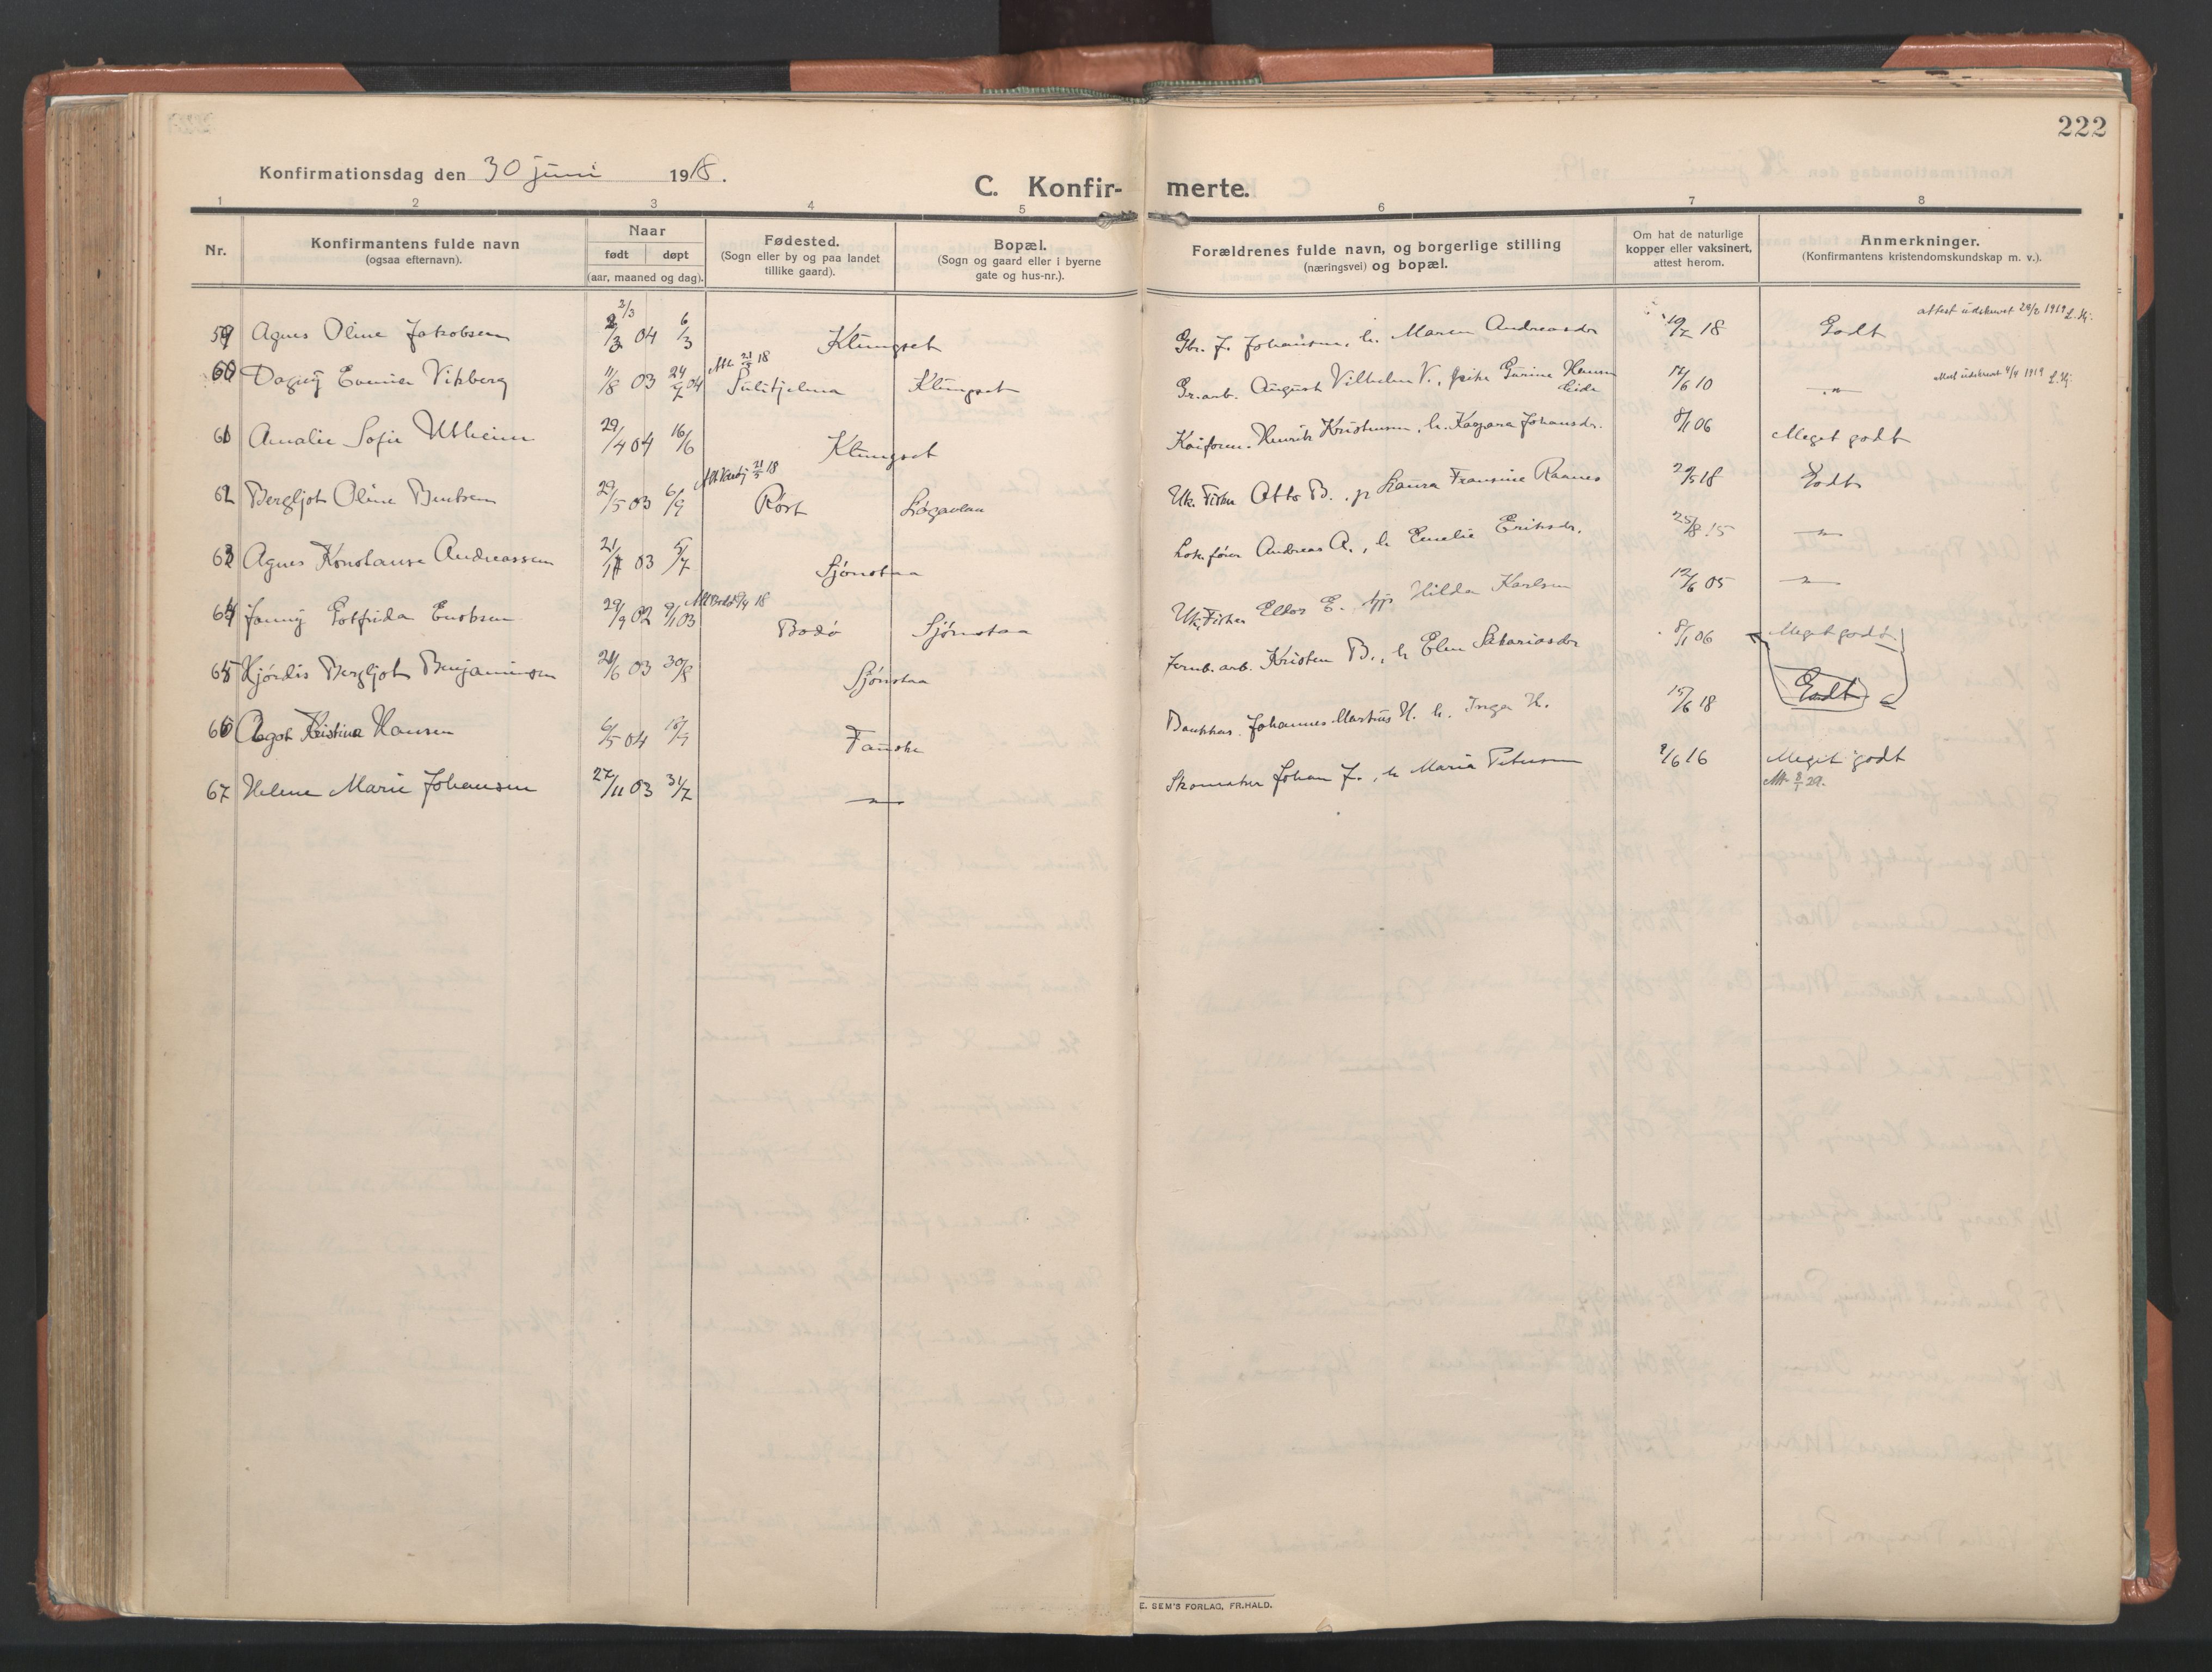 222
Konfirmationsdag den 30 juni 1918.
C. Konfir- merte.
1 2 3 4 5 6 7 8
Nr. Konfirmantens fulde navn (ogsaa efternavn). Naar født døpt (aar, maaned og dag). Fødested. (Sogn eller by og paa landet tillike gaard). Bopæl. (Sogn og gaard eller i byerne gate og hus-nr.). Forældrenes fulde navn, og borgerlige stilling (næringsvei) og bopæl. Om hat de naturlige kopper eller vaksinert, attest herom. Anmerkninger. (Konfirmantens kristendomskundskap m. v.).
59 Agnes Oline Jakobsen 2/3 04 6/3 Klungset Gbr. J. Johansen, h. Maren Andreasdr 10/2 18 Godt attest udskrevet 28/2 1919 L. Hj.
60 Dagny Vikberg 11/8 03 24/7 04 Att. 21/5 18 Sulitjelma Klungset Gr.arb. August Vilhelm V., Gurine Hansen Eide 17/6 10 " 4/4 1919 L. Hj.
61 Amalie Sofie Utheim 29/4 04 16/6 Klungset Henrik Kristensen, h. Kaspara Johansdr. 8/1 06 Meget godt
62 Bergljot Oline Bentsen 29/5 03 6/9 21/5 18 Røst Løgavlen Uk. Fisker Otto B., p. Laura Fransine Raanes 29/5 18 Godt
63 Agnes Konstanse Andreassen 21/4 03 5/7 Sjønstaa Lok.fører Andreas A., h. Emelie Eriksdr. 25/8 15 "
64 Fanny Gotfrida Enoksen 29/9 02 9/1 03 Att Bodø 9/4 18 Bodø Sjønstaa Uk. Fisker Ellos E. Hilda Karlsen 12/6 05 "
65 Hjørdis Bergljot Benjaminsen 21/6 03 30/8 Sjønstaa Jernb. arb. Kristen B., h. Elen Sakariasdr 8/1 06 Meget godt.
Godt
66 Aagot Kristine Hansen 6/5 04 15/9 Fauske Johannes Martius H. h. Inga H. 15/6 18
67 Helene Marie Johansen 27/11 03 31/7 " Skomaker Johan J., h. Maria Petersen 8/6 16 Meget godt
Att. 8/1 29.
E. SEM'S FORLAG, FR.HALD.